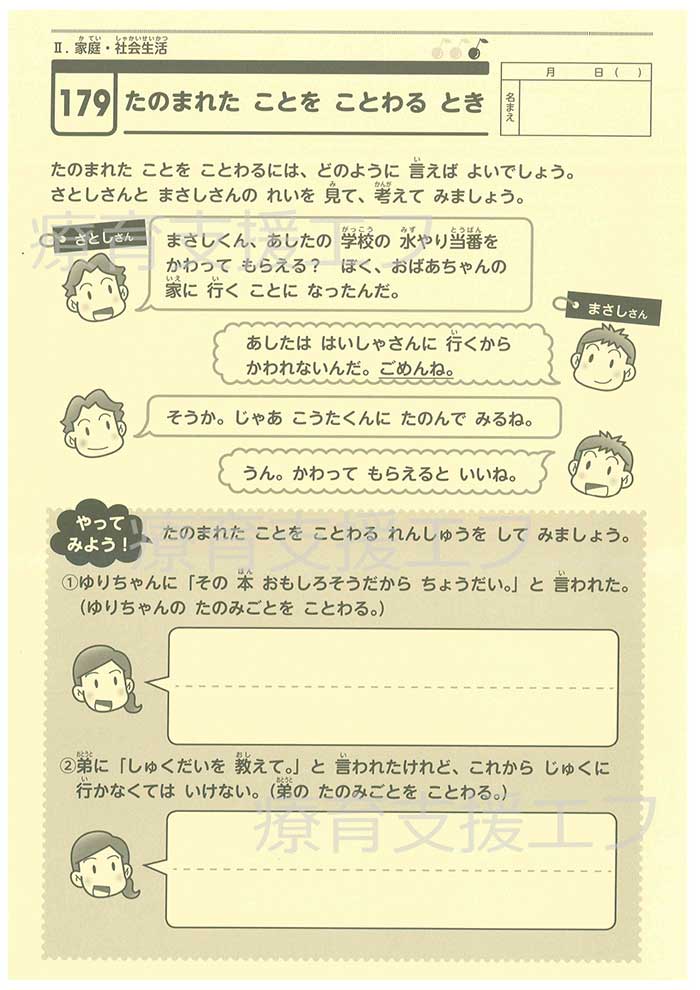 Ⅱ. 家庭・社会生活
かてい しゃかいせいかつ
月 日( )
名まえ
179 たのまれた ことを ことわる とき
たのまれた ことを ことわるには、どのように 言えば よいでしょう。
さとしさんと まさしさんの れいを 見て、考えて みましょう。
さとしさん
まさしくん、あしたの 学校の 水やり当番を
かわって もらえる? ぼく、おばあちゃんの
家に 行く ことに なったんだ。
まさしさん
あしたは はいしゃさんに 行くから
かわれないんだ。ごめんね。
そうか。じゃあ こうたくんに たのんで みるね。
うん。かわって もらえると いいね。
やって
みよう!
たのまれた ことを ことわる れんしゅうを して みましょう。
①ゆりちゃんに「その 本 おもしろそうだから ちょうだい。」と 言われた。
(ゆりちゃんの たのみごとを ことわる。)
②弟に「しゅくだいを 教えて。」と 言われたけれど、これから じゅくに
行かなくては いけない。(弟の たのみごとを ことわる。)
療育支援エフ
療育支援エフ
療育支援エフ